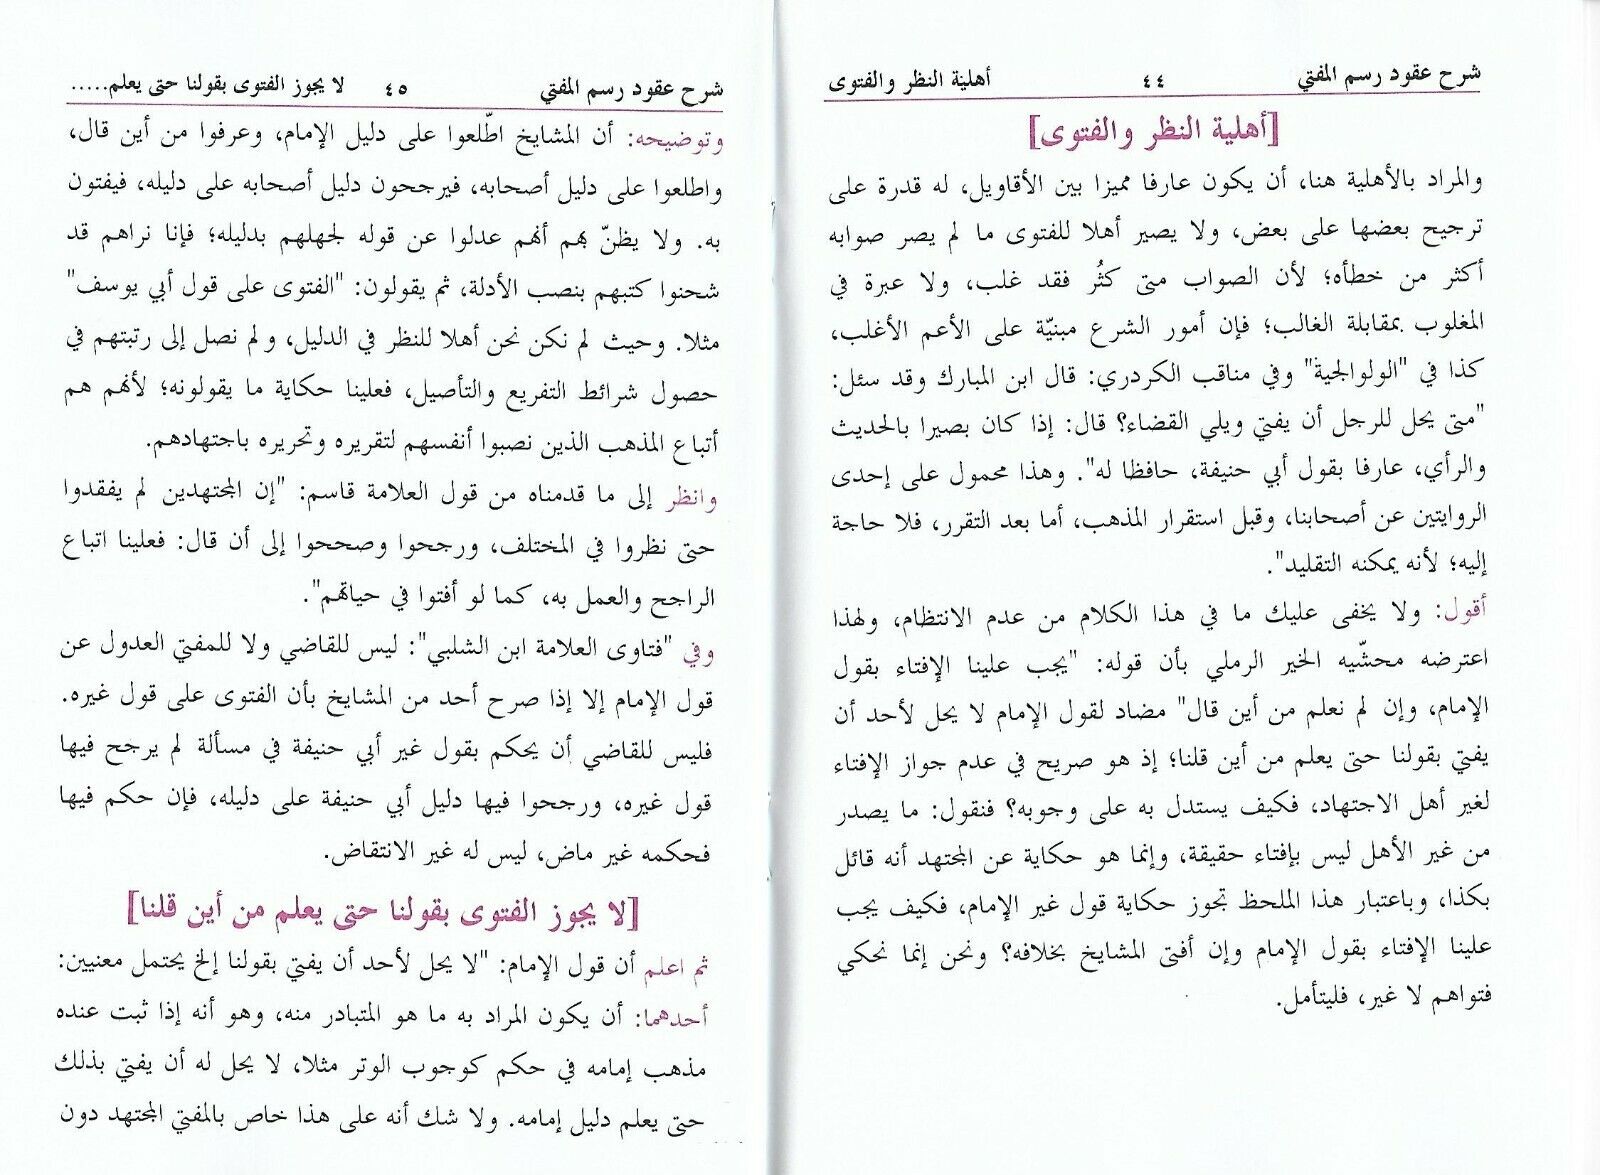 شرح عقود رسم المفتي ٤٤ أهلية النظر والفتوى
[أهلية النظر والفتوى]
والمراد بالأهلية هنا، أن يكون عارفا مميزا بين الأقاويل، له قدرة على
ترجيح بعضها على بعض، ولا يصير أهلا للفتوى ما لم يصر صوابه
أكثر من خطأه؛ لأن الصواب متى كثُر فقد غلب، ولا عبرة في
المغلوب بمقابلة الغالب؛ فإن أمور الشرع مبنيّة على الأعم الأغلب،
كذا في "الولوالجية" وفي مناقب الكردري: قال ابن المبارك وقد سئل:
"متى يحل للرجل أن يفتي ويلي القضاء؟ قال: إذا كان بصيرا بالحديث
والرأي، عارفا بقول أبي حنيفة، حافظا له". وهذا محمول على إحدى
الروايتين عن أصحابنا، وقبل استقرار المذهب، أما بعد التقرر، فلا حاجة
إليه؛ لأنه يمكنه التقليد".
أقول: ولا يخفى عليك ما في هذا الكلام من عدم الانتظام، ولهذا
اعترضه محشّيه الخير الرملي بأن قوله: "يجب علينا الإفتاء بقول
الإمام، وإن لم نعلم من أين قال" مضاد لقول الإمام لا يحل لأحد أن
يفتي بقولنا حتى يعلم من أين قلنا؛ إذ هو صريح في عدم جواز الإفتاء
لغير أهل الاجتهاد، فكيف يستدل به على وجوبه؟ فنقول: ما يصدر
من غير الأهل ليس بإفتاء حقيقة، وإنما هو حكاية عن المجتهد أنه قائل
بكذا، وباعتبار هذا الملحظ تجوز حكاية قول غير الإمام، فكيف يجب
علينا الإفتاء بقول الإمام وإن أفتى المشايخ بخلافه؟ ونحن إنما نحكي
فتواهم لا غير، فليتأمل.
شرح عقود رسم المفتي ٤٥ لا يجوز الفتوى بقولنا حتى يعلم.....
وتوضيحه: أن المشايخ اطّلعوا على دليل الإمام، وعرفوا من أين قال،
واطلعوا على دليل أصحابه، فيرجحون دليل أصحابه على دليله، فيفتون
به. ولا يظنّ بهم أنهم عدلوا عن قوله لجهلهم بدليله؛ فإنا نراهم قد
شحنوا كتبهم بنصب الأدلة، ثم يقولون: "الفتوى على قول أبي يوسف"
مثلا. وحيث لم نكن نحن أهلا للنظر في الدليل، ولم نصل إلى رتبتهم في
حصول شرائط التفريع والتأصيل، فعلينا حكاية ما يقولونه؛ لأنهم هم
أتباع المذهب الذين نصبوا أنفسهم لتقريره وتحريره باجتهادهم.
وانظر إلى ما قدمناه من قول العلامة قاسم: "إن المجتهدين لم يفقدوا
حتى نظروا في المختلف، ورجحوا وصححوا إلى أن قال: فعلينا اتباع
الراجح والعمل به، كما لو أفتوا في حياتهم".
وفي "فتاوى العلامة ابن الشلبي": ليس للقاضي ولا للمفتي العدول عن
قول الإمام إلا إذا صرح أحد من المشايخ بأن الفتوى على قول غيره.
فليس للقاضي أن يحكم بقول غير أبي حنيفة في مسألة لم يرجح فيها
قول غيره، ورجحوا فيها دليل أبي حنيفة على دليله، فإن حكم فيها
فحكمه غير ماض، ليس له غير الانتقاض.
[لا يجوز الفتوى بقولنا حتى يعلم من أين قلنا]
ثم اعلم أن قول الإمام: "لا يحل لأحد أن يفتي بقولنا إلخ يحتمل معنيين:
أحدهما: أن يكون المراد به ما هو المتبادر منه، وهو أنه إذا ثبت عنده
مذهب إمامه في حكم كوجوب الوتر مثلا، لا يحل له أن يفتي بذلك
حتى يعلم دليل إمامه. ولا شك أنه على هذا خاص بالمفتي المجتهد دون